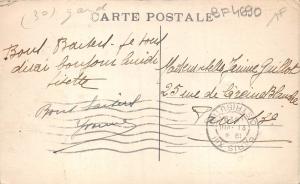 (30) gard
CARTE POSTALE
Bons Baisers - je vous
dirai bonjour lundi
Lisette
Bons baisers
Yvonne
Mademoiselle Jeanne Guillot
25 rue de la Reine Blanche
Paris 13e